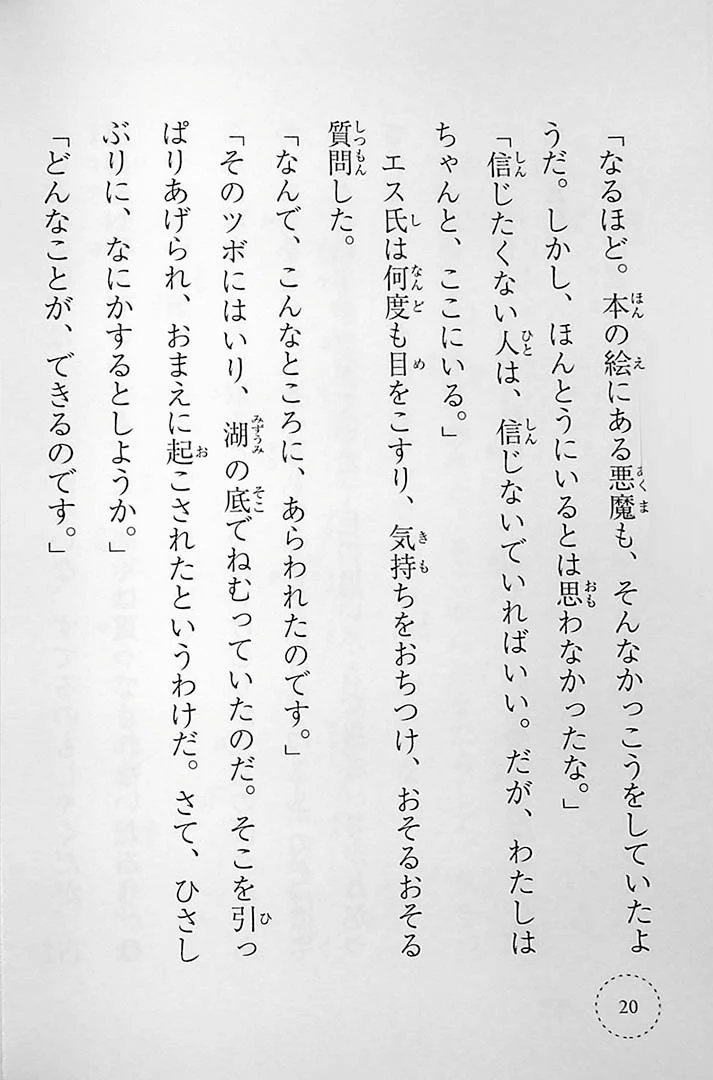 「なるほど。本の絵にある悪魔も、そんなかっこうをしていたよ
うだ。しかし、ほんとうにいるとは思わなかったな。」
「信じたくない人は、信じないでいればいい。だが、わたしは
ちゃんと、ここにいる。」
エス氏は何度も目をこすり、気持ちをおちつけ、おそるおそる
質問した。
「なんで、こんなところに、あらわれたのです。」
「そのツボにはいり、湖の底でねむっていたのだ。そこを引っ
ぱりあげられ、おまえに起こされたというわけだ。さて、ひさし
ぶりに、なにかするとしようか。」
「どんなことが、できるのです。」
20